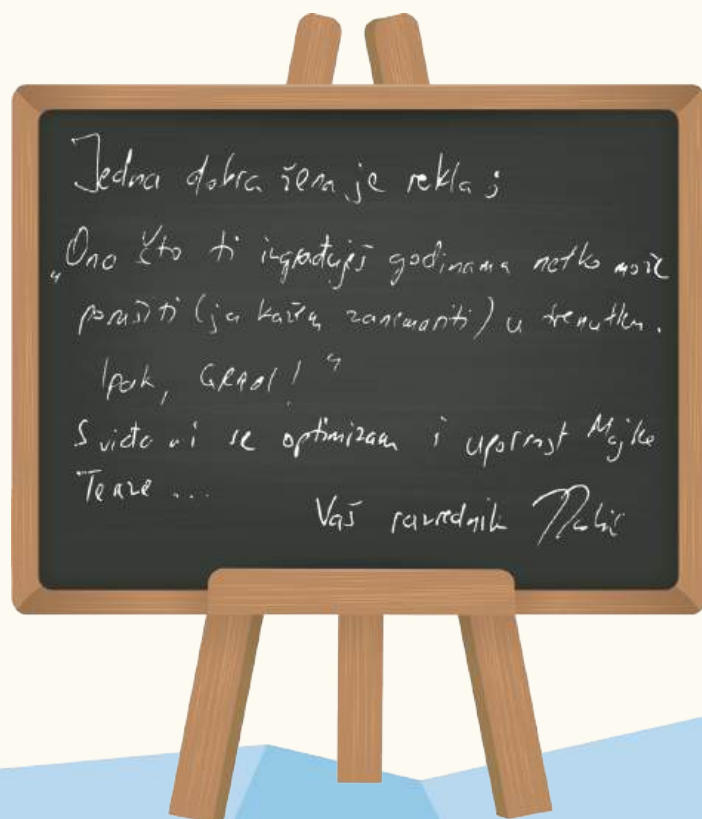 Jedna dobra žena je rekla:
„Ono što ti izgrađuješ godinama netko može
porušiti (ja kažem zanemariti) u trenutku.
Ipak, GRADI!"
Sviđa mi se optimizam i upornost Majke
Tereze ...
Vaš razrednik